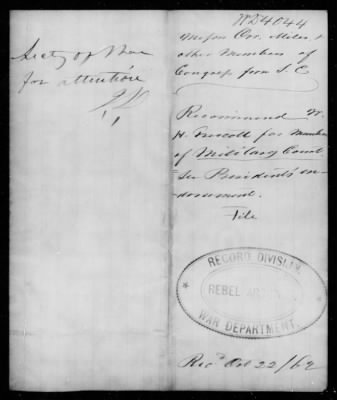 Secty of War
for attention
WD4044
Messrs Orr, Miles, &
other Members of
Congress from S.C.
Recommend W.
H. Trescott for member
of Military Court
See President's en-
dorsement.
File
RECORD DIVISION
REBEL
WAR DEPARTMENT.
Recd Oct 22/62